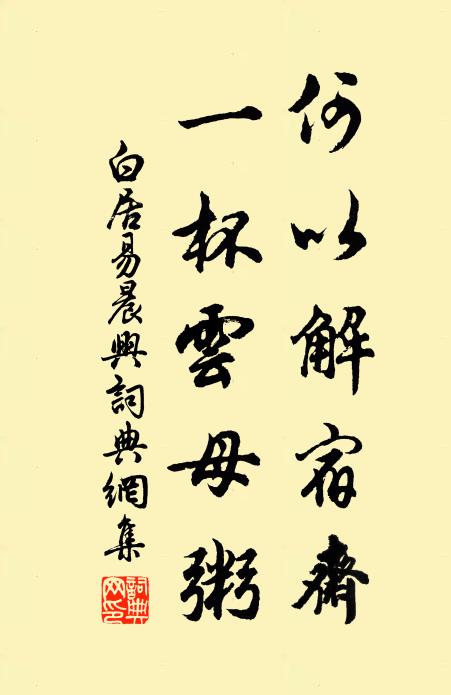 何以解宿齋
一杯雲母粥
白居易晨興詞典網集
詞典网印